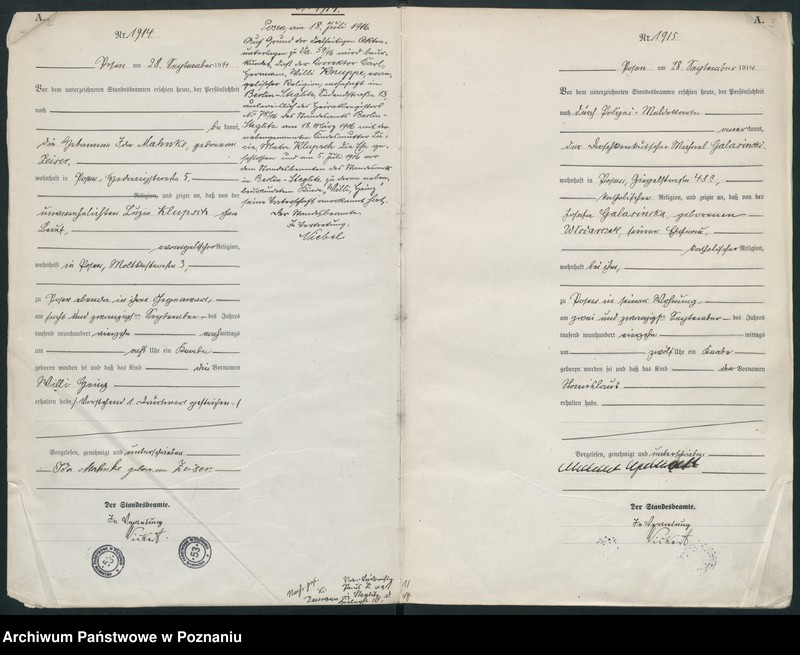 A.
Nr. 1914
Posen am 28. September 1914
Vor dem unterzeichneten Standesbeamten erschien heute, der Persönlichkeit
nach
be kannt,
die Hebamme Ida Mahnke, geborene
Zeiser,
wohnhaft in Posen,
Religion, und zeigte an, daß von der
unverehelichten Luzia Klupsch, ohne
Beruf,
evangelischer Religion,
wohnhaft in Posen, Moltkestraße 3,
zu Posen ebenda in ihrer Gegenwart,
am sechs und zwanzigsten September des Jahres
tausend neunhundert vierzehn nachmittags
um acht Uhr ein Knabe
geboren worden sei und daß das Kind die Vornamen
Willi Heinz
erhalten habe. Vorstehend 1 Druckwort gestrichen.
Vorgelesen, genehmigt und unterschrieben
Ida Mahnke geborene Zeiser
Der Standesbeamte.
In Vertretung
Posen, am 18. Juli 1916
Auf Grund der
wird beur-
kundet, daß der Korrektor Karl,
Hermann, Willi Knuppe, evan-
gelischer Religion, wohnhaft in
Berlin-Steglitz, 13
des Heiratsregisters
des Standesamts Berlin-
Steglitz am 18. März 1916 mit der
nebengenannten Kindesmutter Lu-
cie, Klupsch die Ehe ge-
schlossen und am 5. Juli 1916 vor
dem Standesbeamten des Standesamts
in Berlin-Steglitz zu dem neben
beurkundeten Kinde "Willi Heinz"
seine Vaterschaft anerkannt hat.
Der Standesbeamte.
In Vertretung.
A.
Nr. 1915
Posen am 28. September 1914
Vor dem unterzeichneten Standesbeamten erschien heute, der Persönlichkeit
nach durch Polizei-Meldeschein
anerkannt,
der Droschkenkutscher Michael Galasinski
wohnhaft in Posen,
katholischer Religion, und zeigte an, daß von der
Josefa Galasinska, geborenen
Wlodarczak, seiner Ehefrau,
katholischer Religion,
wohnhaft bei ihm,
zu Posen in seiner Wohnung
am zwei und zwanzigsten September des Jahres
tausend neunhundert vierzehn mittags
um zwölf Uhr ein Knabe
geboren worden sei und daß das Kind den Vornamen
Stanislaus
erhalten habe.
Vorgelesen, genehmigt und unterschrieben
Der Standesbeamte.
In Vertretung
Archiwum Państwowe w Poznaniu